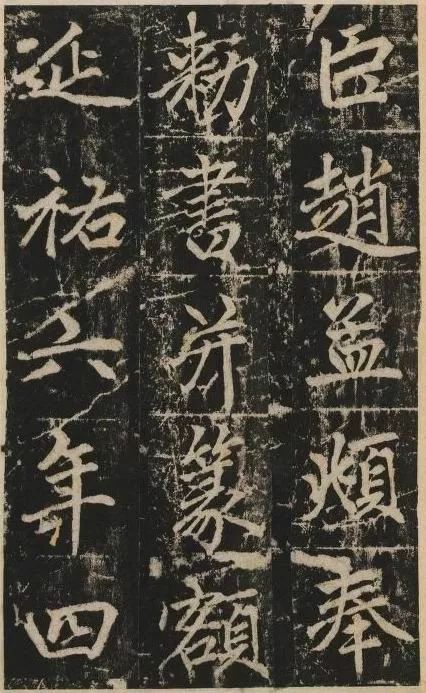 臣趙孟頫奉
勅書并篆額
延祐六年四